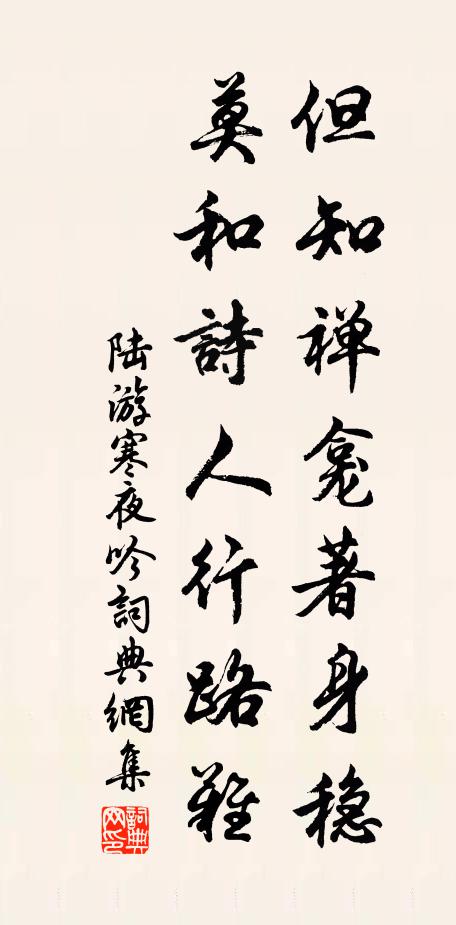 但知禅龛著身稳
莫和詩人行路難
陆游寒夜吟詞典網集
詞典网印